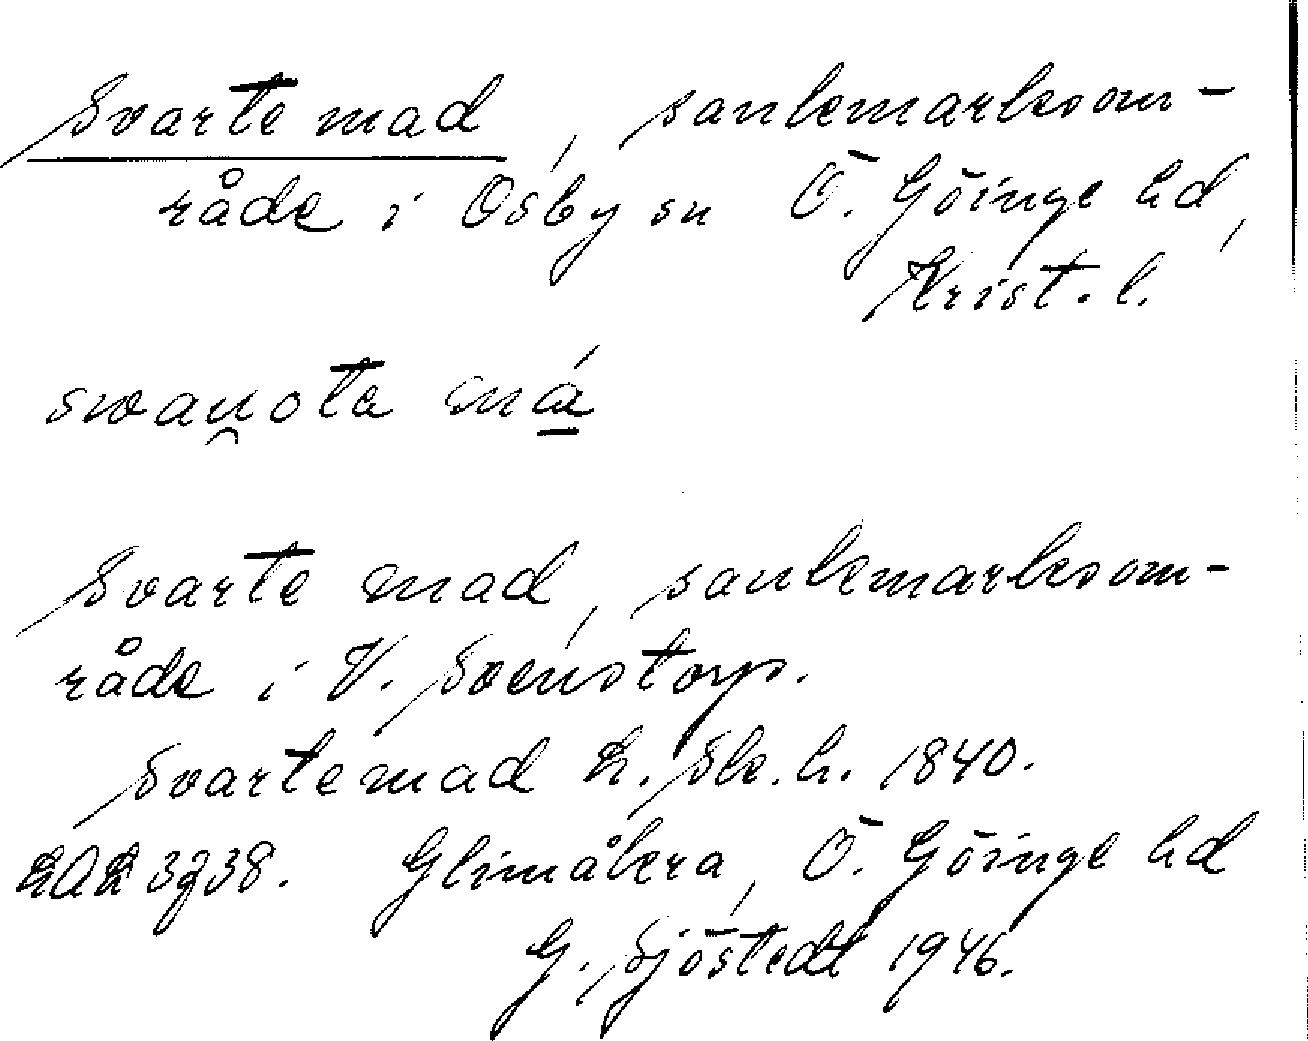 Svarte mad, sankmarksom-
råde i Osby sn Ö. Göinge hd,
Krist. l.
må
Svarte mad, sankmarksom-
råde i V. Svenstorp.
Svartemad L. Sk. h. 1840.
3738. Glimåkra, Ö. Göinge hd
G. Sjöstedt 1946.